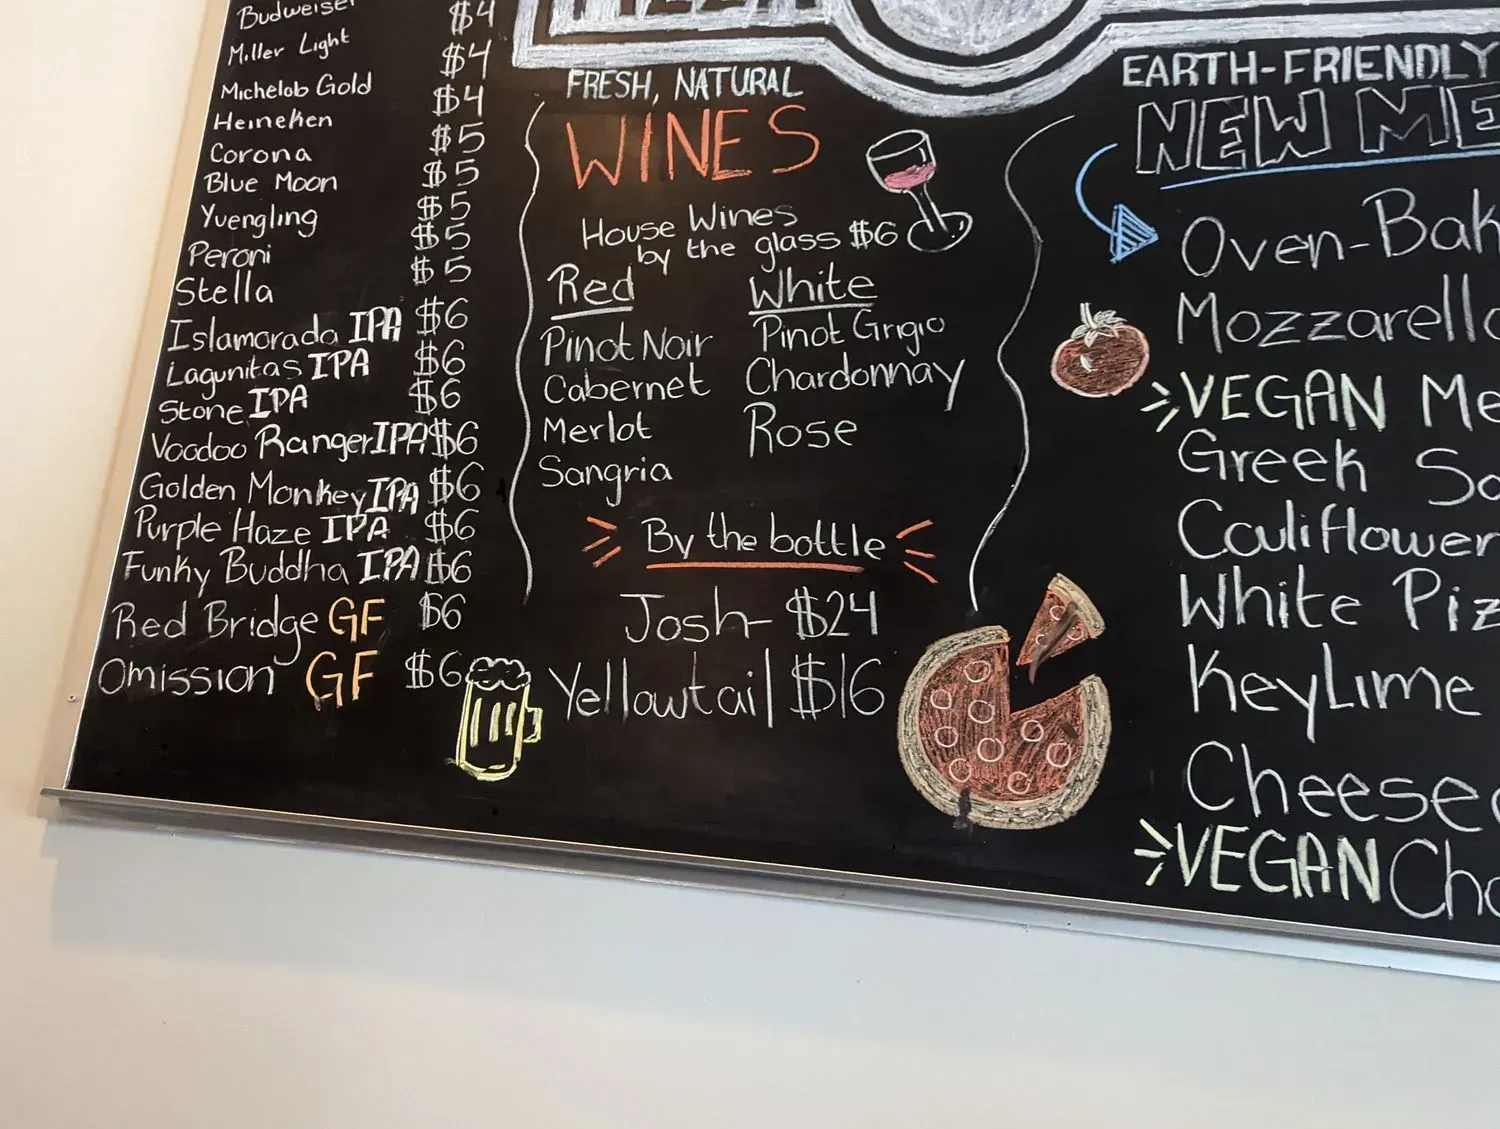 PIZZA
Budweiser $4
Miller Light $4
Michelob Gold $4
Heineken $5
Corona $5
Blue Moon $5
Yuengling $5
Peroni $5
Stella
Islamorada IPA $6
Lagunitas IPA $6
Stone IPA $6
Voodoo Ranger IPA $6
Golden Monkey IPA $6
Purple Haze IPA $6
Funky Buddha IPA $6
Red Bridge GF $6
Omission GF $6
FRESH, NATURAL
WINES
House Wines
by the glass $6
Red
Pinot Noir
Cabernet
Merlot
Sangria
White
Pinot Grigio
Chardonnay
Rose
By the bottle
Josh- $24
Yellowtail $16
EARTH-FRIENDLY
NEW ME
Oven-Bak
Mozzarella
VEGAN Me
Greek Sa
Cauliflower
White Piz
KeyLime
Cheesec
VEGAN Cho